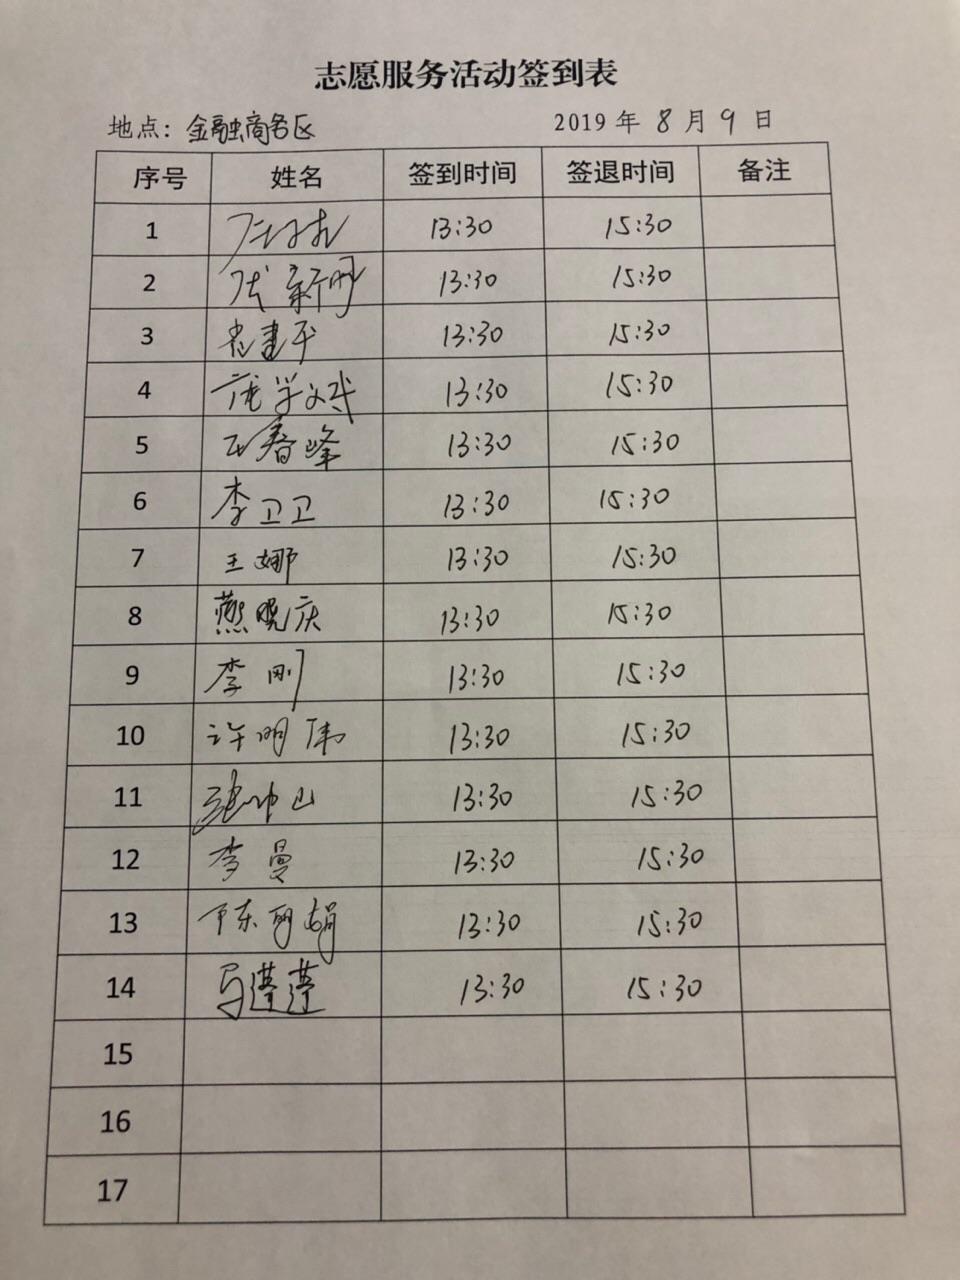 志愿服务活动签到表
地点：金融商务区 2019 年 8 月 9 日
序号 姓名 签到时间 签退时间 备注
1 13:30 15:30
2 张新明 13:30 15:30
3 袁建平 13:30 15:30
4 13:30 15:30
5 王春峰 13:30 15:30
6 李卫卫 13:30 15:30
7 王娜 13:30 15:30
8 燕晓庆 13:30 15:30
9 李刚 13:30 15:30
10 许明伟 13:30 15:30
11 13:30 15:30
12 李曼 13:30 15:30
13 陈丽娟 13:30 15:30
14 13:30 15:30
15
16
17